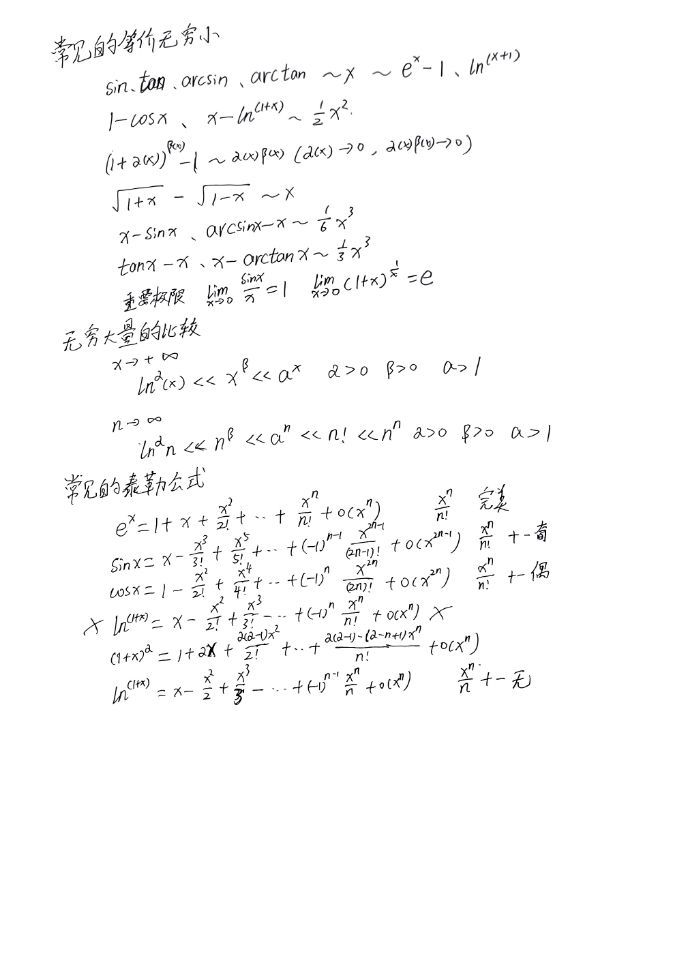 常见的等价无穷小
sin、tan、arcsin、arctan ~ x ~ e^x - 1、ln^(x+1)
1-cosx、x-ln^(1+x) ~ 1/2 x^2.
(1+2(x))^β(x) - 1 ~ 2(x)β(x) (2(x)→0, 2(x)β(x)→0)
√(1+x) - √(1-x) ~ x
x-sinx、arcsinx-x ~ 1/6 x^3
tanx-x、x-arctanx ~ 1/3 x^3
重要极限 lim x→0 sinx/x = 1 lim x→0 (1+x)^(1/x) = e
无穷大量的比较
x→+∞
ln^2(x) << x^β << a^x 2>0 β>0 a>1
n→∞
ln^2 n << n^β << a^n << n! << n^n 2>0 β>0 a>1
常见的泰勒公式
e^x = 1 + x + x^2/2! + ... + x^n/n! + o(x^n) x^n/n! 完美
sinx = x - x^3/3! + x^5/5! + ... + (-1)^(n-1) x^(2n-1)/(2n-1)! + o(x^(2n-1)) x^n/n! +- 奇
cosx = 1 - x^2/2! + x^4/4! + ... + (-1)^n x^(2n)/(2n)! + o(x^(2n)) x^n/n! +- 偶
× ln^(1+x) = x - x^2/2! + x^3/3! - ... + (-1)^n x^n/n! + o(x^n) ×
(1+x)^2 = 1 + 2x + 2(2-1)x^2/2! + ... + 2(2-1)-(2-n+1)x^n/n! + o(x^n)
ln^(1+x) = x - x^2/2 + x^3/3 - ... + (-1)^(n-1) x^n/n + o(x^n) x^n/n +- 无